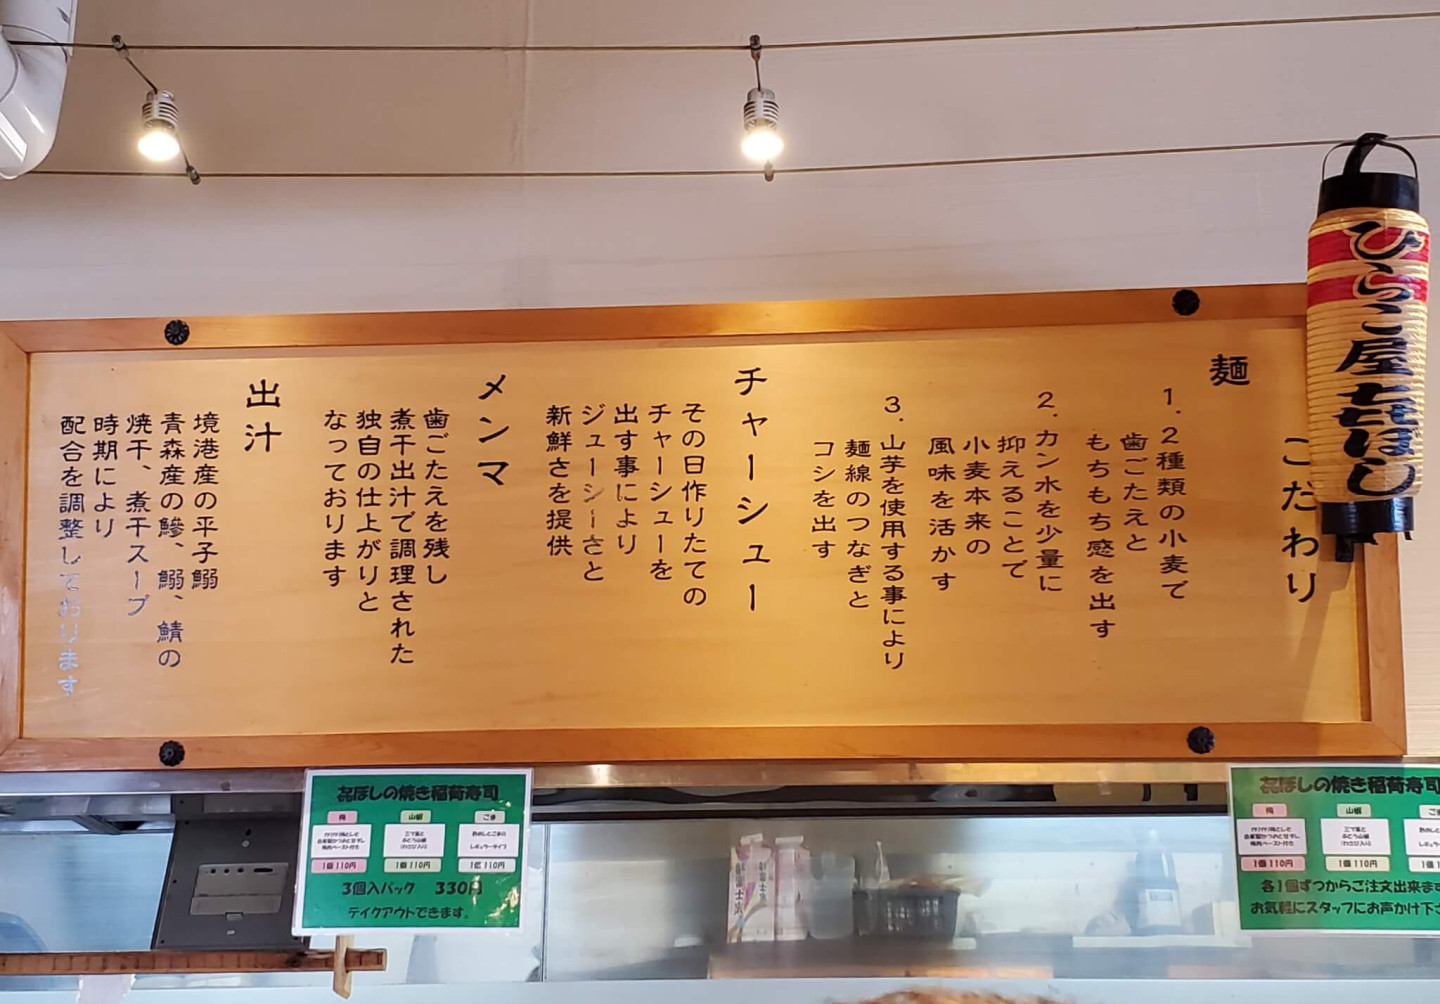 ひらこ屋㐂ぼし
こだわり
麺
1.2種類の小麦で
歯ごたえと
もちもち感を出す
2.カン水を少量に
抑えることで
小麦本来の
風味を活かす
3.山芋を使用する事により
麺線のつなぎと
コシを出す
チャーシュー
その日作りたての
チャーシューを
出す事により
ジューシーさと
新鮮さを提供
メンマ
歯ごたえを残し
煮干出汁で調理された
独自の仕上がりと
なっております
出汁
境港産の平子鰯
青森産の鯵、鰯、鯖の
焼干、煮干スープ
時期により
配合を調整しております
㐂ぼしの焼き稲荷寿司
梅
山椒
ごま
1個110円
1個110円
1個110円
3個入パック 330円
テイクアウトできます。
㐂ぼしの焼き稲荷寿司
梅
山椒
1個110円
1個110円
各1個ずつからご注文出来ます
お気軽にスタッフにお声かけ下さ